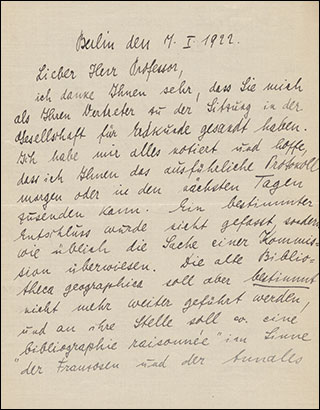 Berlin den 17. I 1922.
Lieber Herr Professor,
ich danke Ihnen sehr, dass Sie mich
als Ihren Vertreter zu der Sitzung in der
Gesellschaft für Erdkunde gesandt haben.
Ich habe mir alles notiert und hoffe,
dass ich Ihnen das ausführliche Protokoll
morgen oder in den nächsten Tagen
zusenden kann. Ein bestimmter
Entschluss wurde nicht gefasst, sondern
wie üblich die Sache einer Kommis-
sion überwiesen. Die alte Biblio-
theca geographica soll aber bestimmt
nicht mehr weiter geführt werden,
und an ihre Stelle soll ev. eine
"bibliographie raisonnée" im Sinne
der Franzosen und der Annales